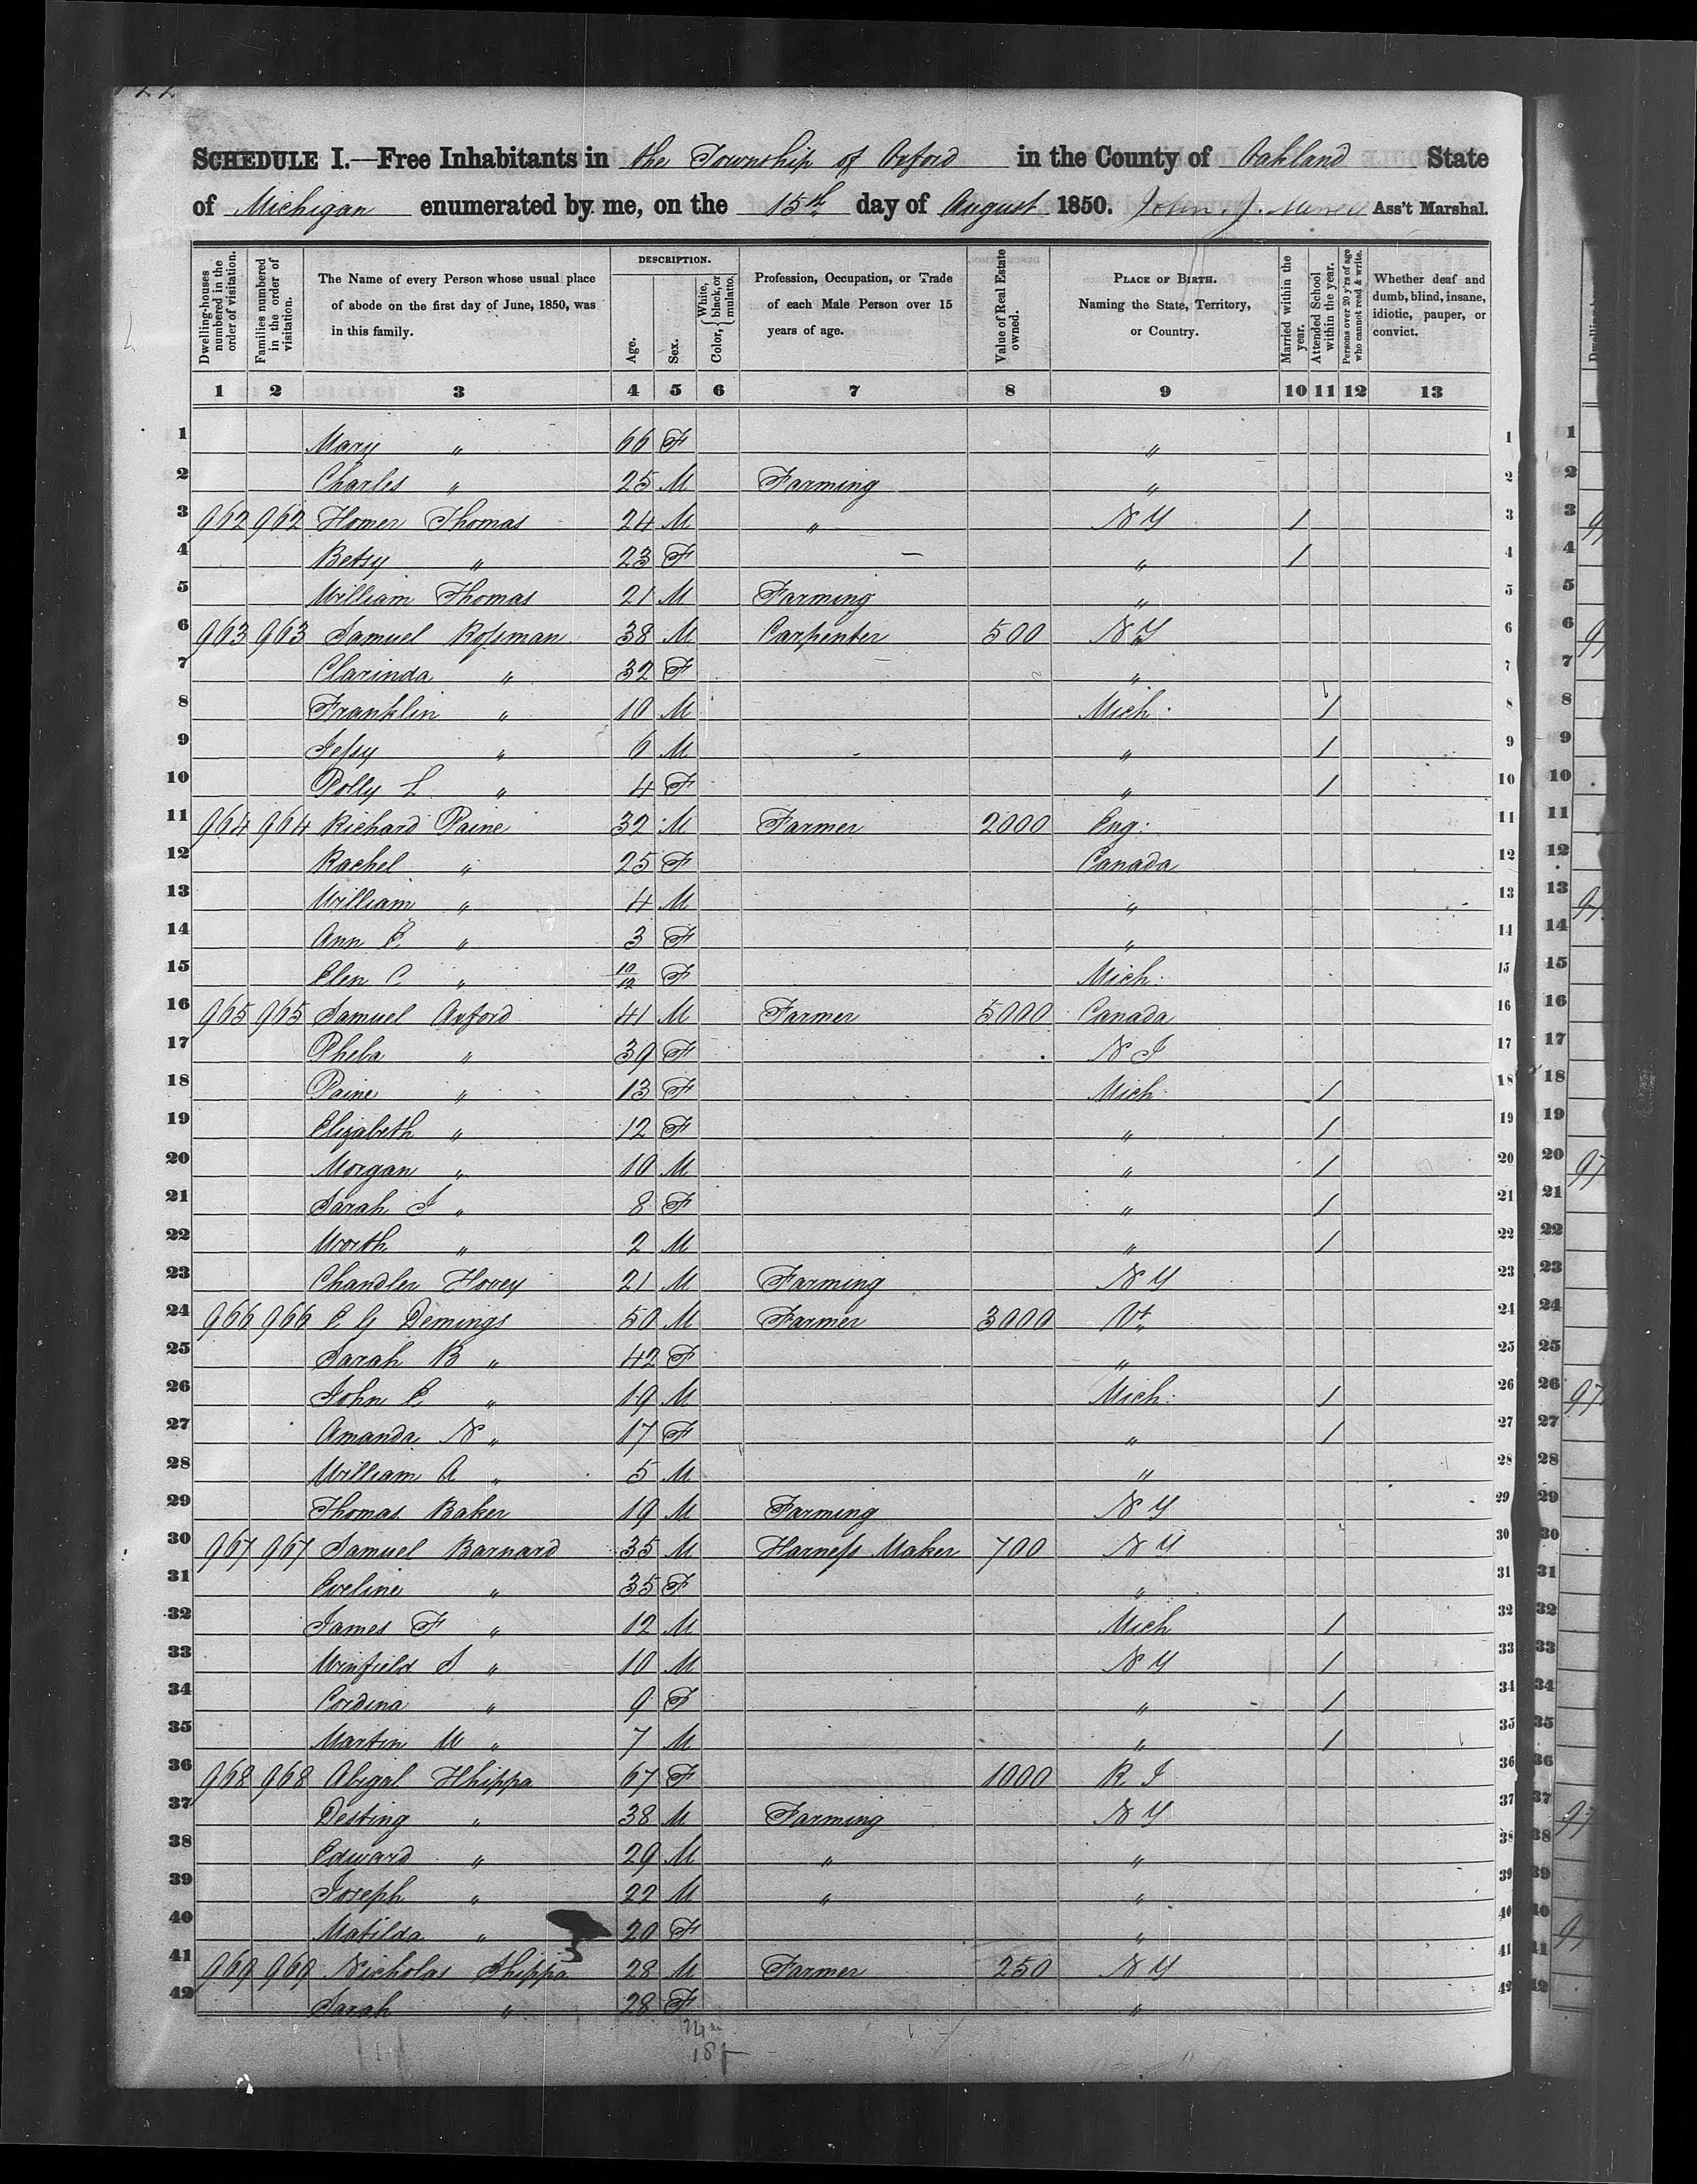 SCHEDULE I.—Free Inhabitants in the Township of Oxford in the County of Oakland State
of Michigan enumerated by me, on the 15th day of August 1850. John J. Ass't Marshal.
Dwelling-houses numbered in the order of visitation.
Families numbered in the order of visitation.
The Name of every Person whose usual place of abode on the first day of June, 1850, was in this family.
DESCRIPTION.
Age.
Sex.
Color, { White, black, or mulatto.
Profession, Occupation, or Trade of each Male Person over 15 years of age.
Value of Real Estate owned.
PLACE OF BIRTH. Naming the State, Territory, or Country.
Married within the year.
Attended School within the year.
Persons over 20 y'rs of age who cannot read & write.
Whether deaf and dumb, blind, insane, idiotic, pauper, or convict.
1 2 3 4 5 6 7 8 9 10 11 12 13
1 Mary " 66 F " 1
2 Charles " 25 M Farming " 2
3 962 962 Homer Thomas 24 M " N Y / 3
4 Betsy " 23 F — " / 4
5 William Thomas 21 M Farming " 5
6 963 963 Samuel Rossman 38 M Carpenter 500 N Y 6
7 Clarinda " 32 F " 7
8 Franklin " 10 M Mich. / 8
9 Jessy " 6 M " / 9
10 Polly L " 4 F " / 10
11 964 964 Richard Paine 32 M Farmer 2000 Eng: 11
12 Rachel " 25 F Canada 12
13 William " 4 M " 13
14 Ann E " 3 F " 14
15 Elen C " 10/12 F Mich: 15
16 965 965 Samuel Axford 41 M Farmer 5000 Canada 16
17 Pheba " 39 F N J 17
18 Paine " 13 F Mich / 18
19 Elizabeth " 12 F " / 19
20 Morgan " 10 M " / 20
21 Sarah J " 8 F " / 21
22 Worth " 2 M " / 22
23 Chandler Hovey 21 M Farming N Y 23
24 966 966 E G Demings 50 M Farmer 3000 Vt 24
25 Sarah B " 42 F " 25
26 John E " 19 M Mich: / 26
27 Amanda N " 17 F " / 27
28 William A " 5 M " 28
29 Thomas Baker 19 M Farming N Y 29
30 967 967 Samuel Barnard 35 M Harness Maker 700 N Y 30
31 Eveline " 35 F " 31
32 James F " 12 M Mich / 32
33 Winfield S " 10 M N Y / 33
34 Cordina " 9 F " / 34
35 Martin W " 7 M " / 35
36 968 968 Abigal Hhippa 67 F 1000 R I 36
37 Desting " 38 M Farming N Y 37
38 Edward " 29 M " " 38
39 Joseph " 22 M " " 39
40 Matilda " 20 F " 40
41 969 969 Nicholas Shippa 28 M Farmer 250 N Y 41
42 Sarah " 28 F " 42
24 m
18 f